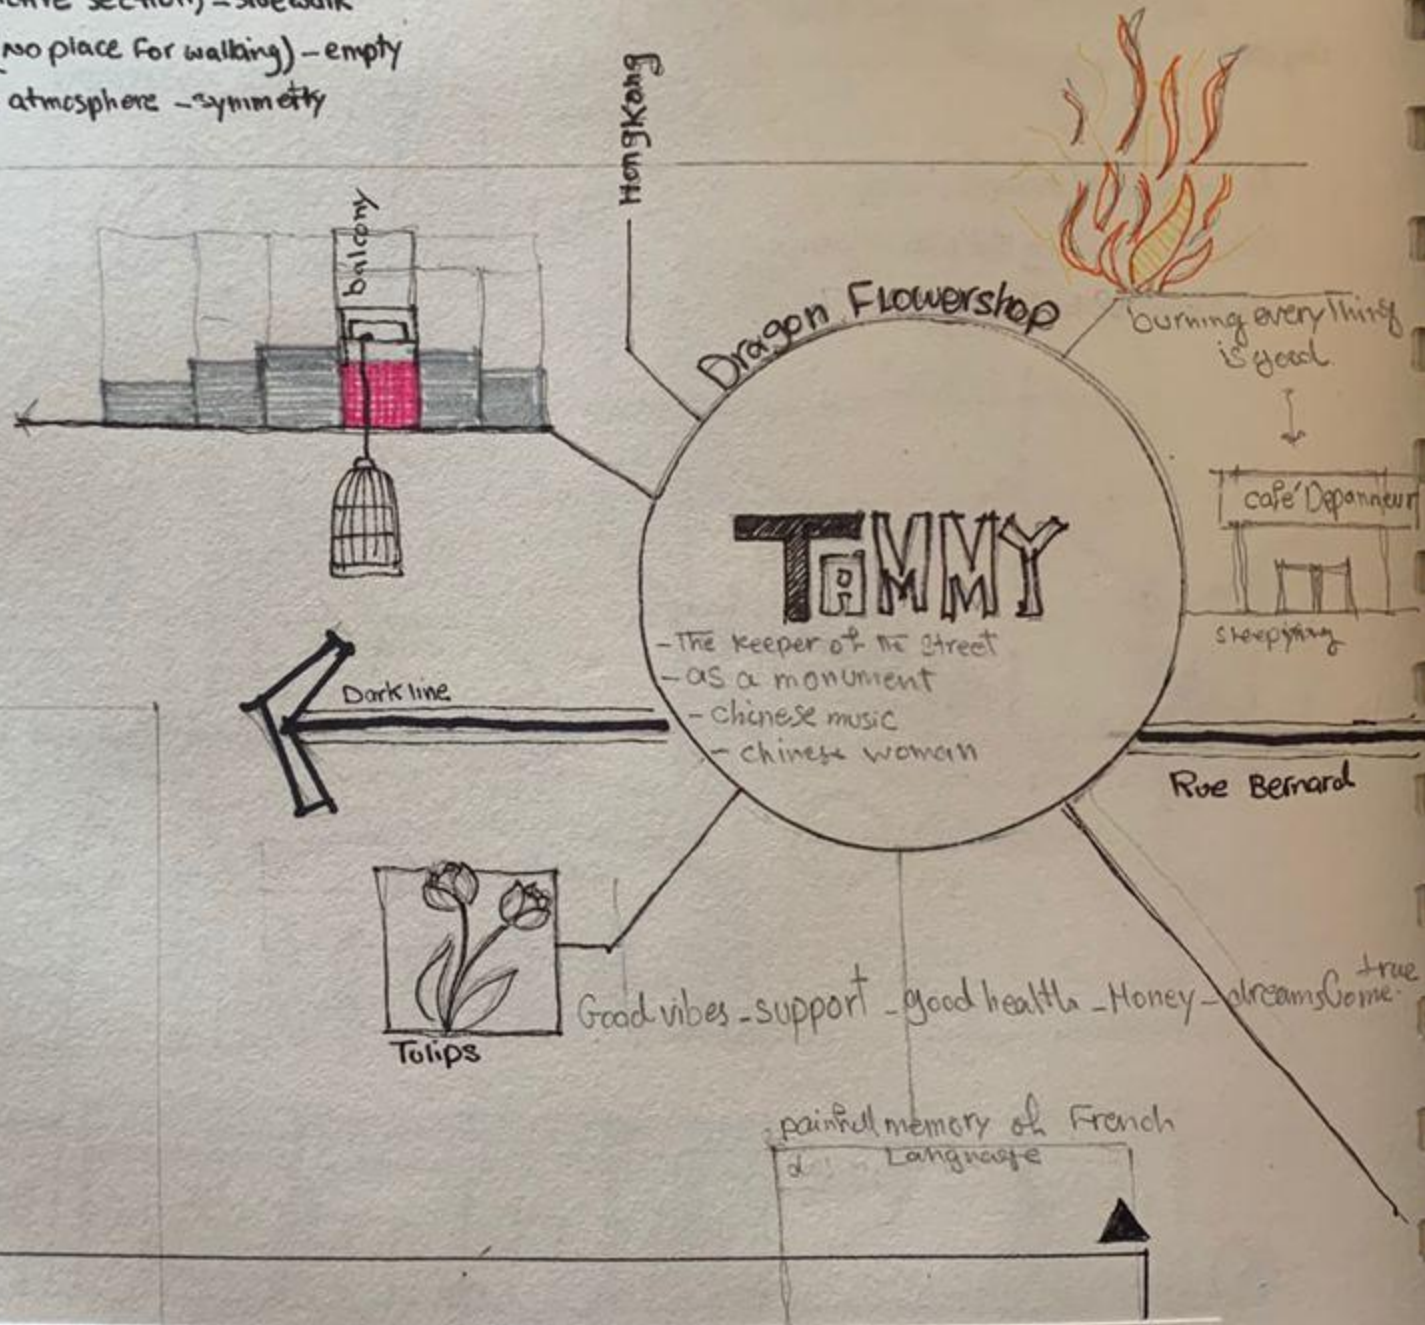 section) - sidewalk
(No place for walking) - empty
atmosphere - symmetty
HongKong
balcony
Dragon Flowershop
burning everything
is good
café Depanneur
TAMMY
- The Keeper of the Street
- as a monument
- chinese music
- chinese woman
Dark line
Rue Bernard
true
Good vibes - support - good health - Money - dreams Come
Tulips
painfull memory of French
Language